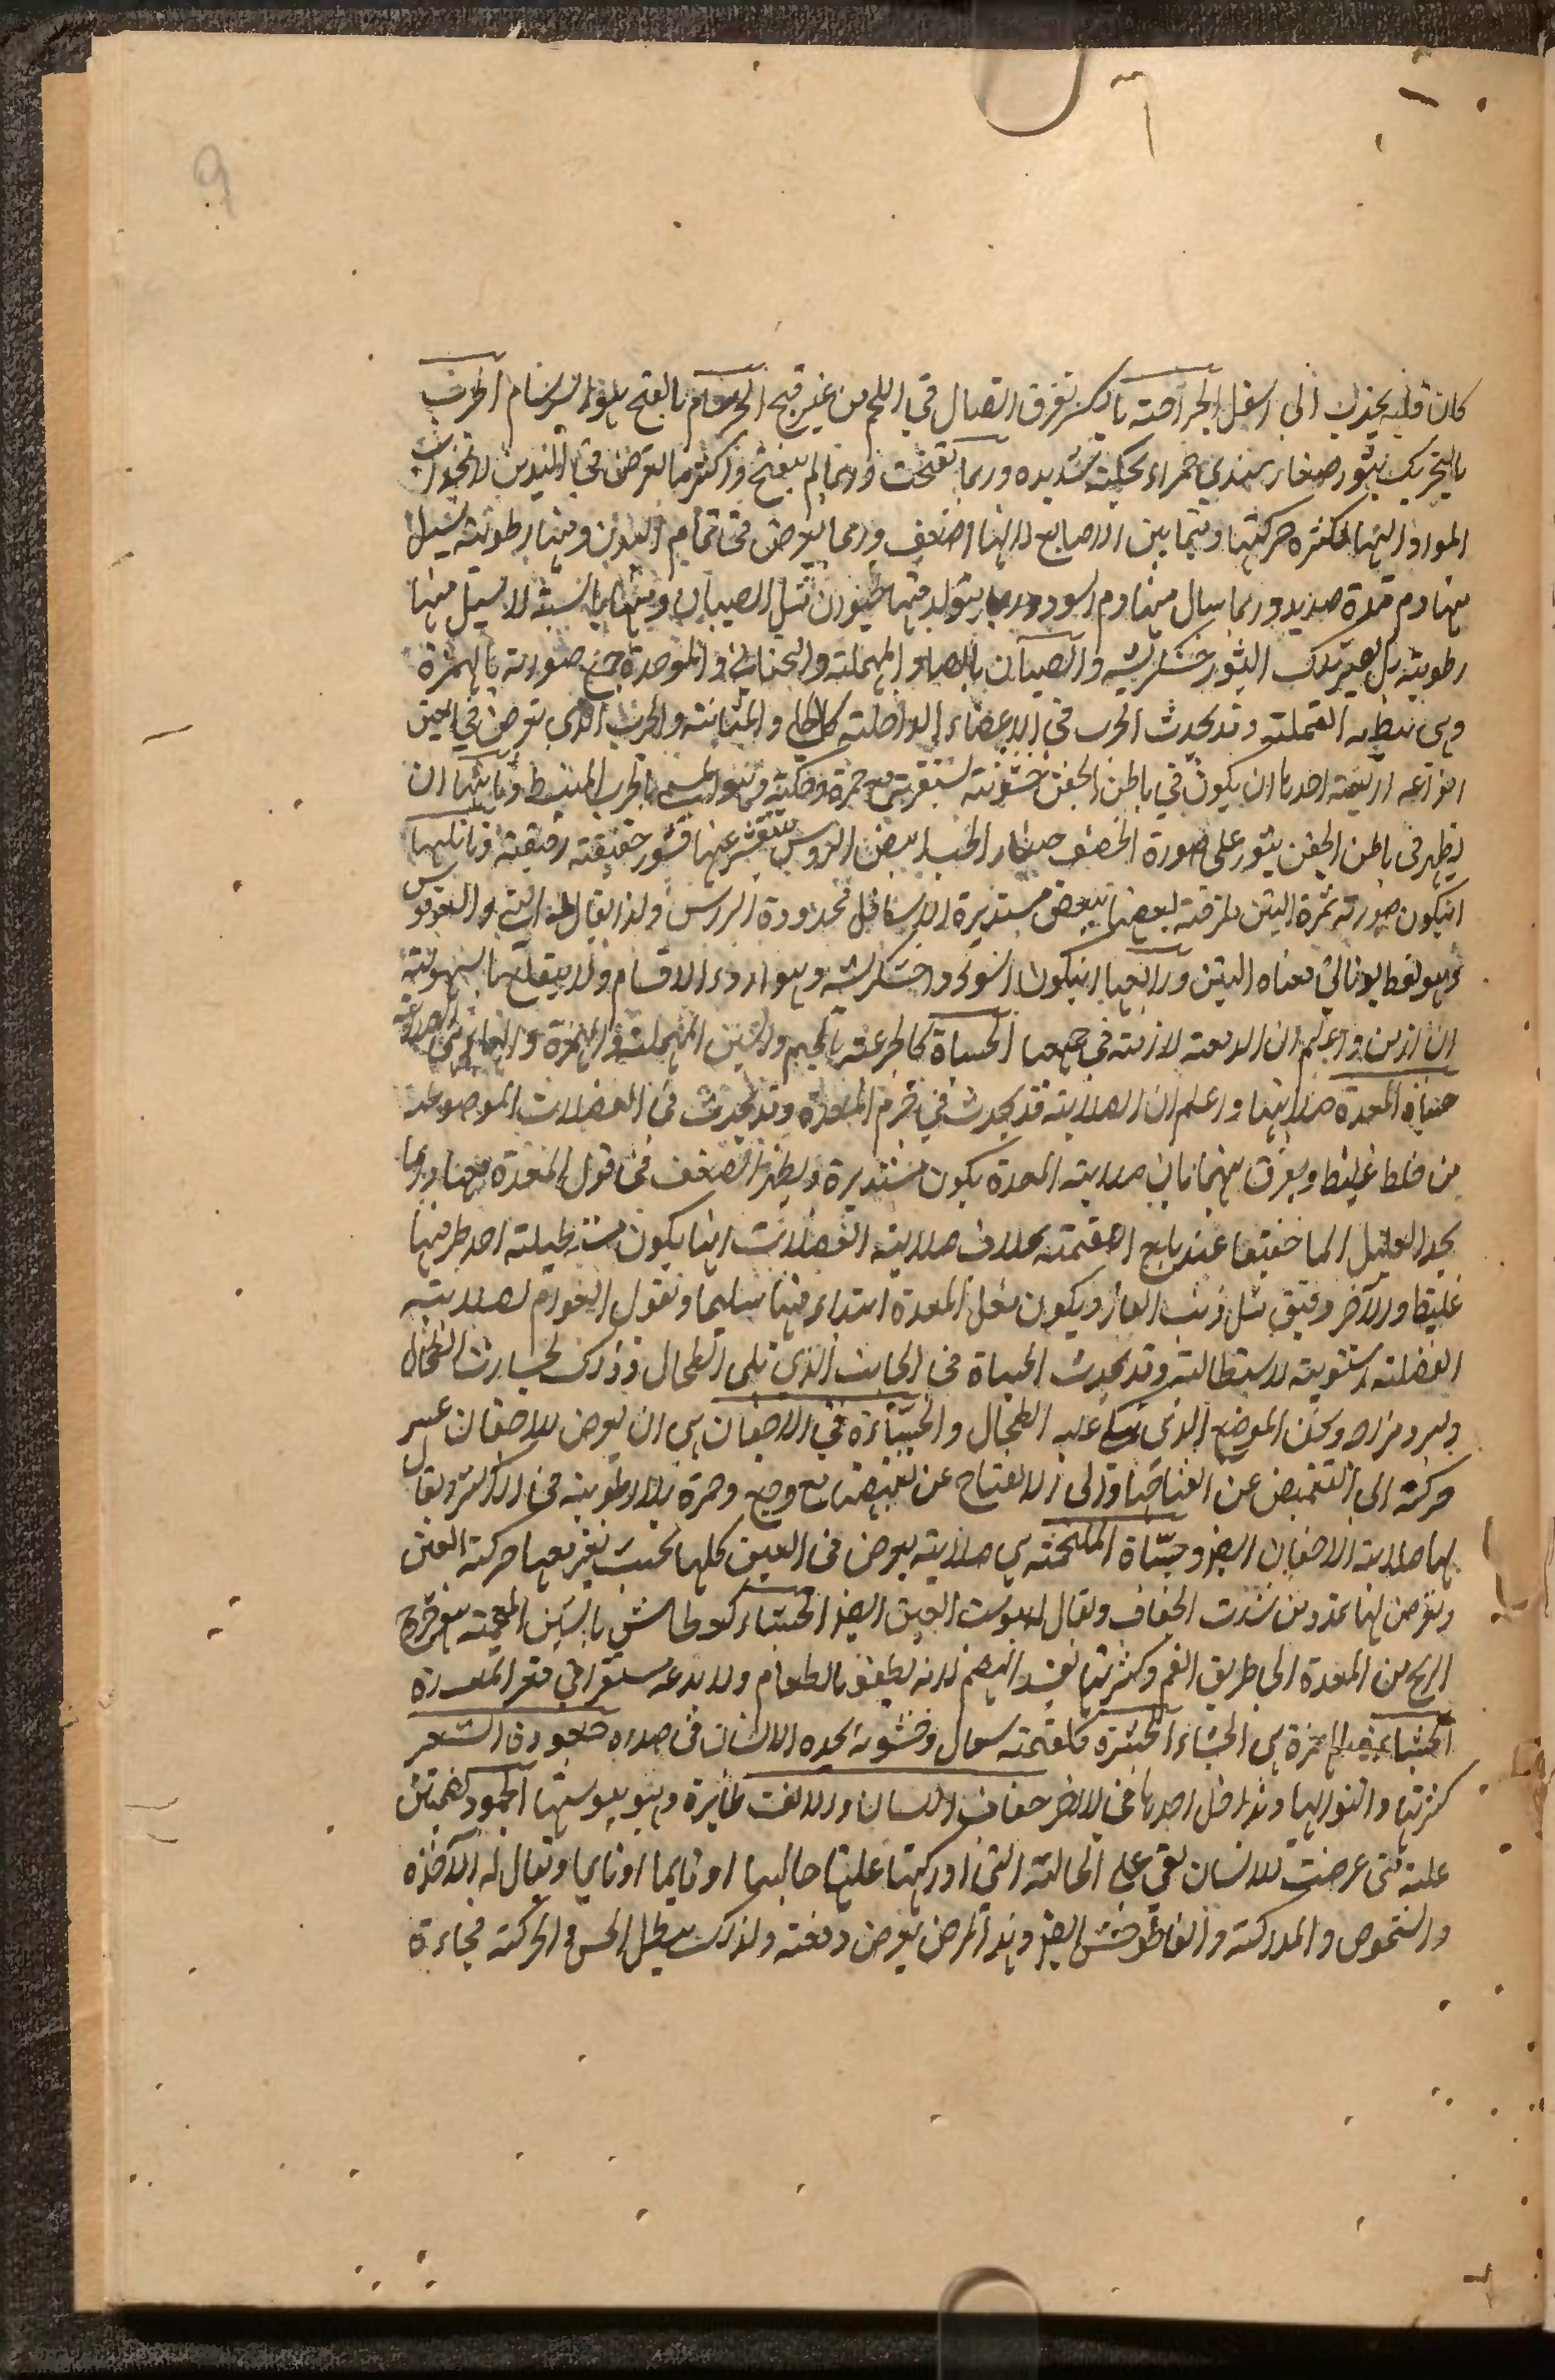 9
كان قلبه يجذب الى اسفل الجراحة بالكسر تفرق اتصال في اللحم من غير قيح الجرسام بالفتح هو البرسام الجرب
بالتحريك بثور صغار يبتدي حمراء بحكة شديدة وربما تقيحت وربما لم يتقيح واكثر ما يعرض في اليدين لانجذاب
المواد اليها لكثرة حركتها وفيما بين الاصابع لانها اضعف وربما يعرض في تمام البدن ومنها رطوبة يسيل
منها دم مدة صديد وربما سال منها دم اسود وربما يتولد فيها حيوان مثل الصيبان ومنها يابسة لا يسيل منها
رطوبة بل يصير تلك البثور خشكريشة والصيبان بالصاد المهملة والتحتانية والموحدة جمع صوابة بالهمزة
وهي بيضة القملة وقد يحدث الجرب في الاعضاء الداخلة كالكلى والمثانة والجرب الذي يعرض في العين
انواعه اربعة احدها ان يكون في باطن الجفن خشونة يستقر مع حمرة وحكة وهو المسمى بالجرب المنبسط وثانيها ان
يظهر في باطن الجفن بثور على صورة الحصف صغار الحب ابيض الروس يتقشر عنها قشور خفيفة رقيقة وثالثها
ان يكون صورته ثمرة التين ملزقة بعضها ببعض مستديرة الاسافل محدودة الرؤس ولذا يقال له التيني والسوقوسيس
وهو لفظ يوناني معناه التين ورابعها ان يكون اسود وا خشكريشة وهو اردء الاقسام ولا ينقلع بسهولة
ان ازمن واعلم ان الدمعة لازمة في جميعها الجساة كالجرعة بالجيم والسين المهملة والهمزة والهاء هي الصلابة
جساة المعدة صلابتها واعلم ان الصلابة قد يحدث في جرم المعدة وقد يحدث في العضلات الموضوعة
من خلط غليظ ويفرق بينهما بان صلابة المعدة يكون مستديرة ويظهر الضعف في قول المعدة معها وربما
يجد العليل الما خفيفا عند بلع اللقمة بخلاف صلابة العضلات انها يكون مستطيلة احد طرفيها
غليظ والآخر دقيق مثل ذنب الفار ويكون فعل المعدة ابتداء فيها سليما ونقول الخوارم لصلابة
العضلة مستوية لاستطالته وقد يحدث الجساة في الجانب الذي يلي الطحال وذلك لجساوة الطحال
وبرد مزاجه ويخن الموضع الذي يتكي عليه الطحال والجساة في الاجفان هي ان يعرض للاجفان عسر
حركة الى التغميض عن انفتاحها والى الانفتاح عن تغميضها مع وجع وحمرة بلا رطوبة في الاكثر ويقال
لها صلابة الاجفان ايضا وجساة الملتحمة هي صلابة يعرض في العين كلها بحيث يعسر معها حركة العين
ويعرض لها تمدد من شدت الجفاف ويقال له يبوست العين ايضا الجشاء كعطاش بالشين المعجمة هو خروج
الريح من المعدة الى طريق الفم وكثرتها يفسد الهضم لانه يطفو بالطعام ولا يدعه يستقر في قعر المعدة
الجشاء بالهمزة هي الجشاء الجشرة كلقمة سعال وخشونة يجده الانسان في صدره جعودة الشعر
كثرتها والتوائها وتداخل احدها في الاخر جفاف اللسان والانف ظاهرة وهو يبوستهما الجمود كضمتين
علة متى عرضت للانسان بقي على الحالة التي ادركتها عليها جالسا او نايما او قايما ويقال له الآخذة
والشخوص والمدركة وقاطوخس ايضا وهذا المرض يعرض دفعة ولذلك يبطل الحس والحركة فجاءة